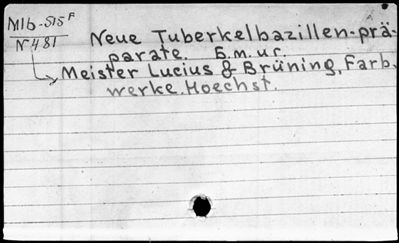 M1b-515F
N481
Neue Tuberkelbazillen-prä-
parate. B.m.ur.
Meister Lucius & Brüning, Farb,
werke. Hoechst.